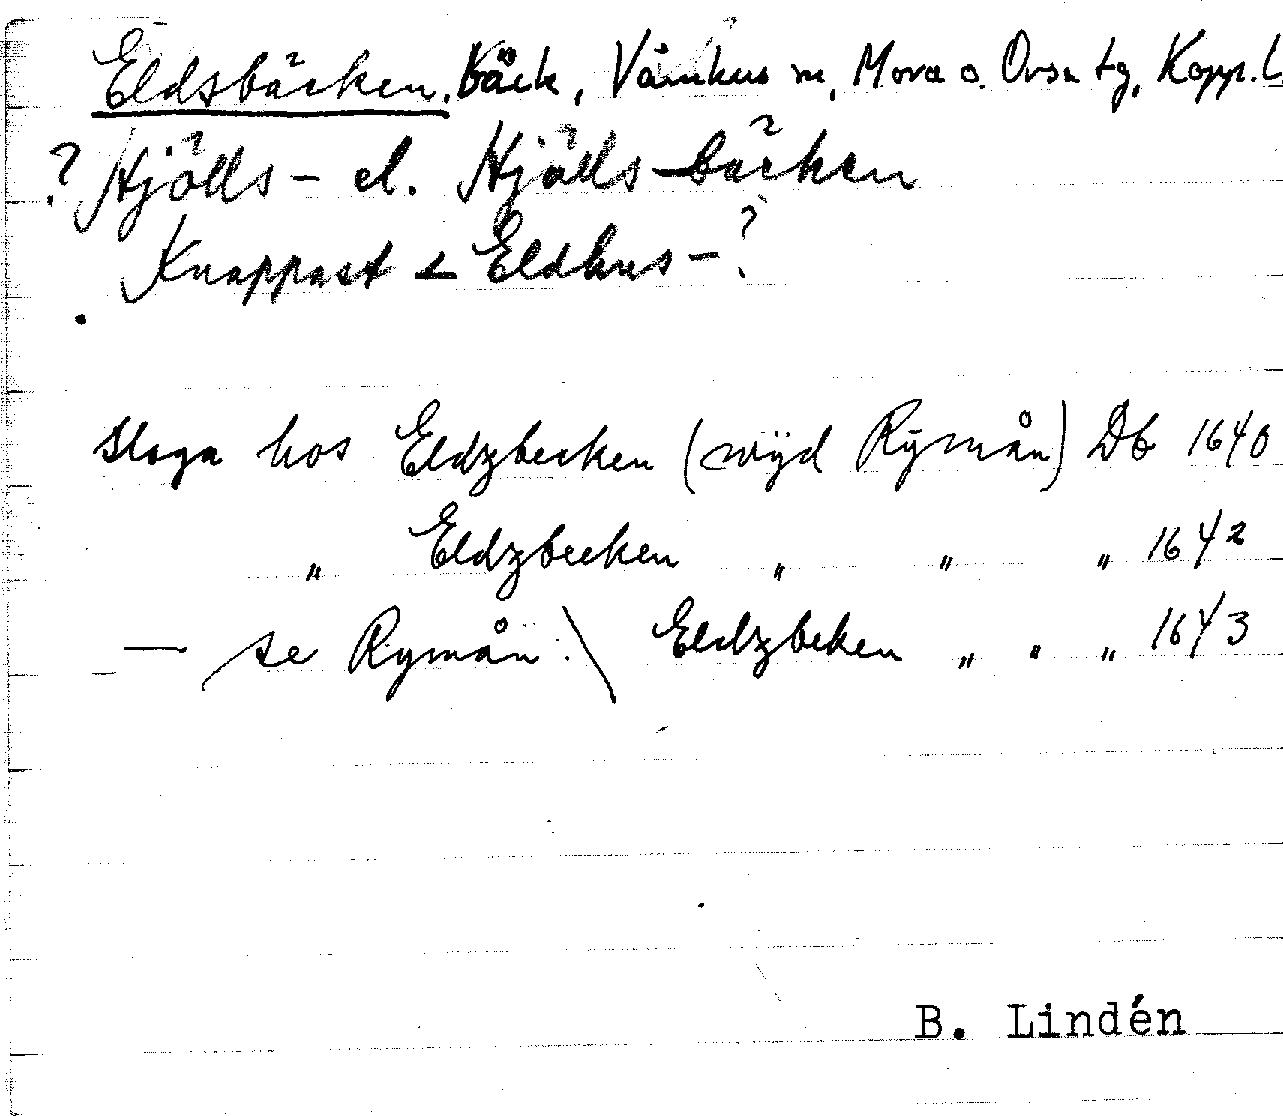 Eldsbäcken. Bäck, Våmhus sn, Mora o. Orsa tg, Kopp. L
? Hjölls- el. Hjälls-bäcken
Knappast < Eldhus-?
Sloga hos Eldzbecken (wijd Rÿmån) Db 1640
„ Eldzbecken „ „ „ 1642
— se Rymån. \ Eldzbeken „ „ „ 1643
B. Lindén